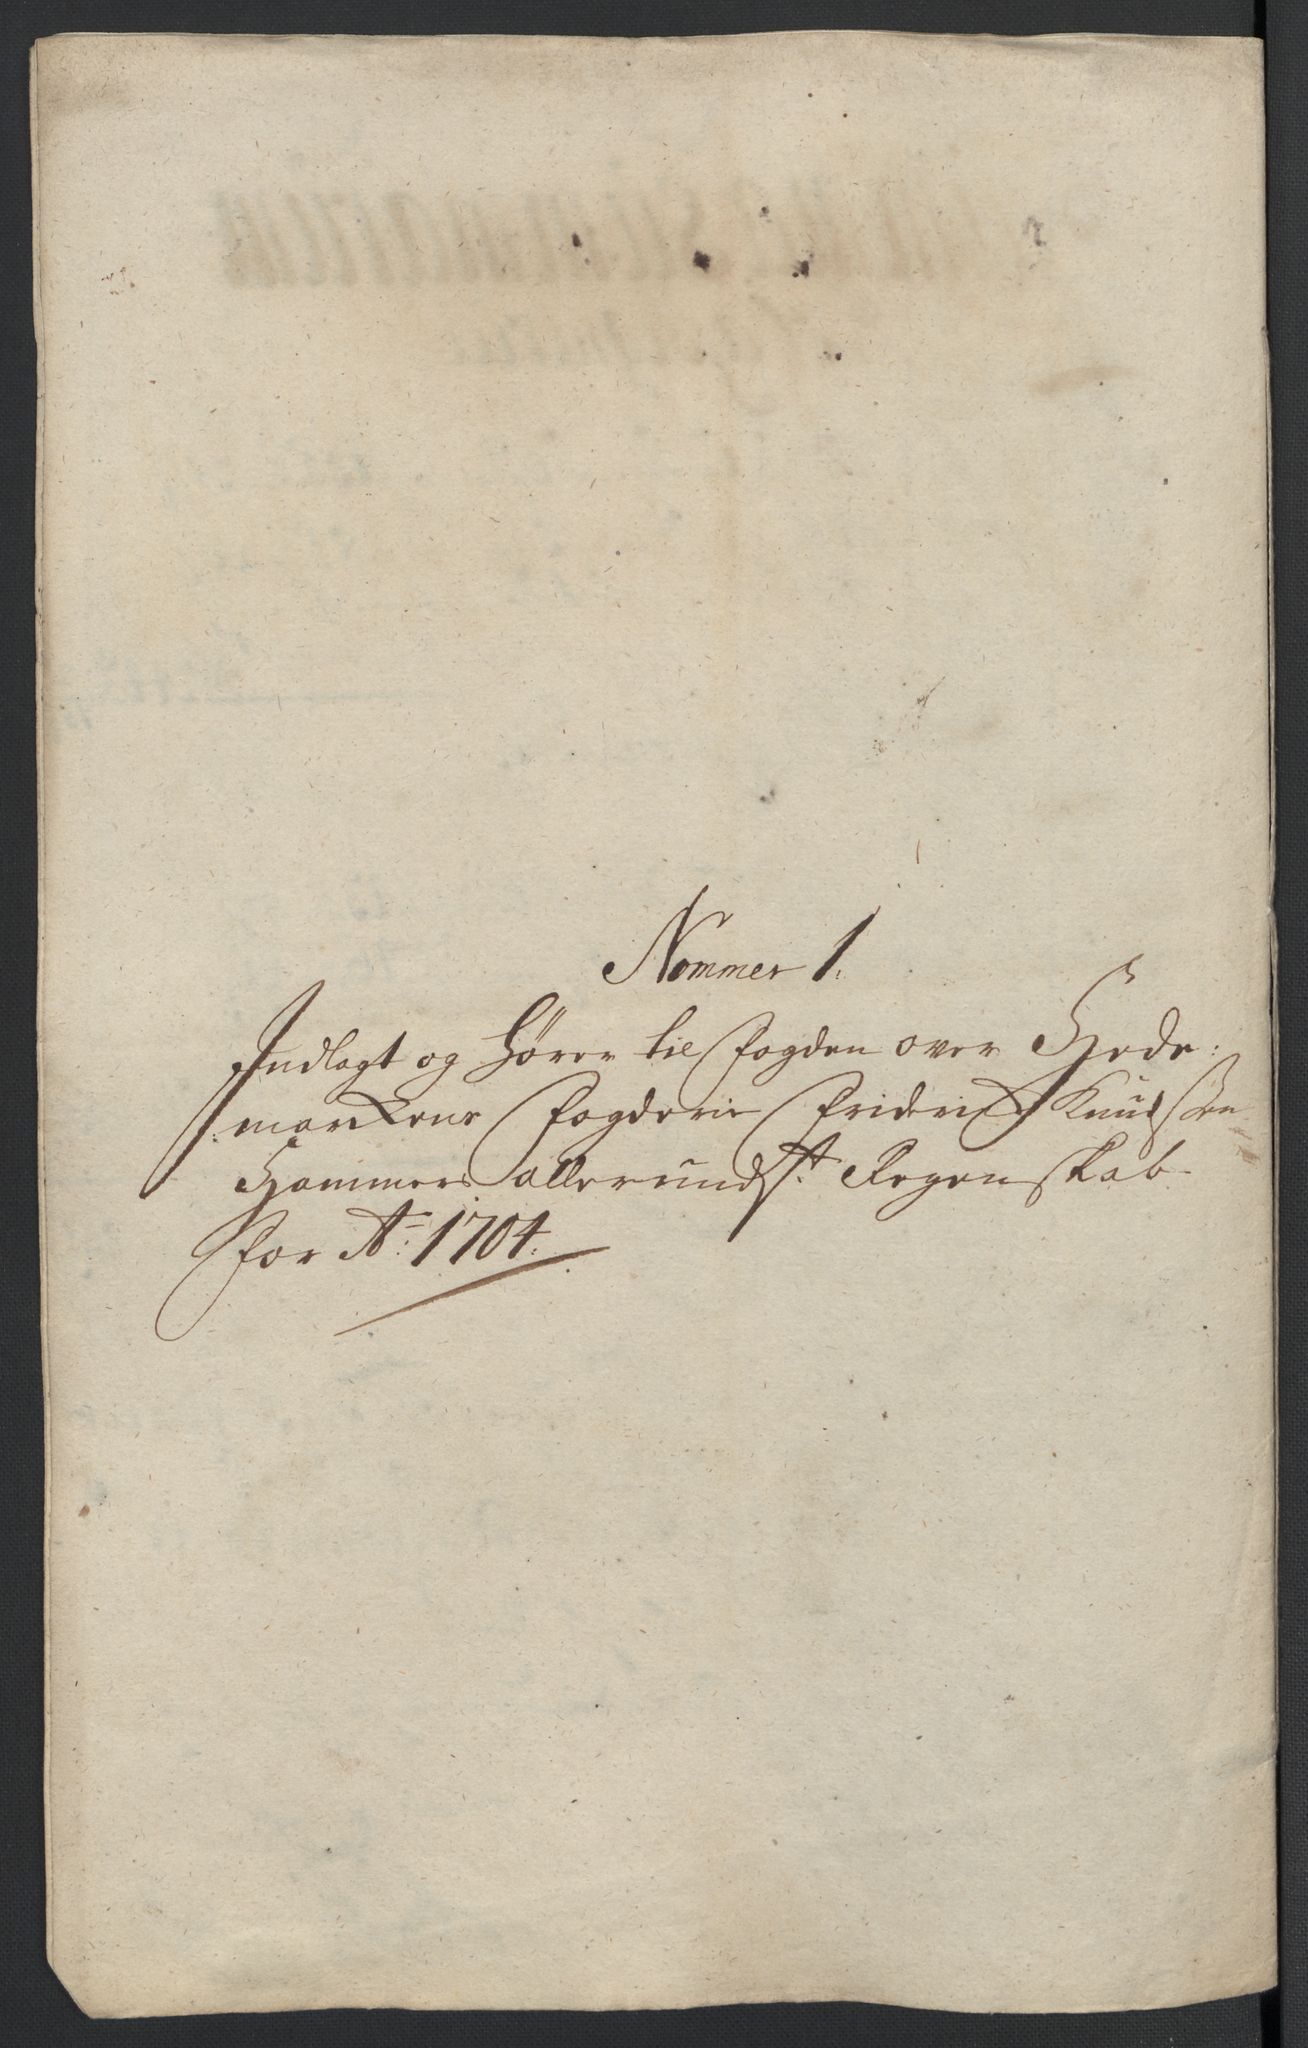 Nommer 1.
Indlagt og hörer til fogden over Hede:
:markens fogderie friderich Knudssen
Hammers allerundst. Regenskab
for Ao: 1704.